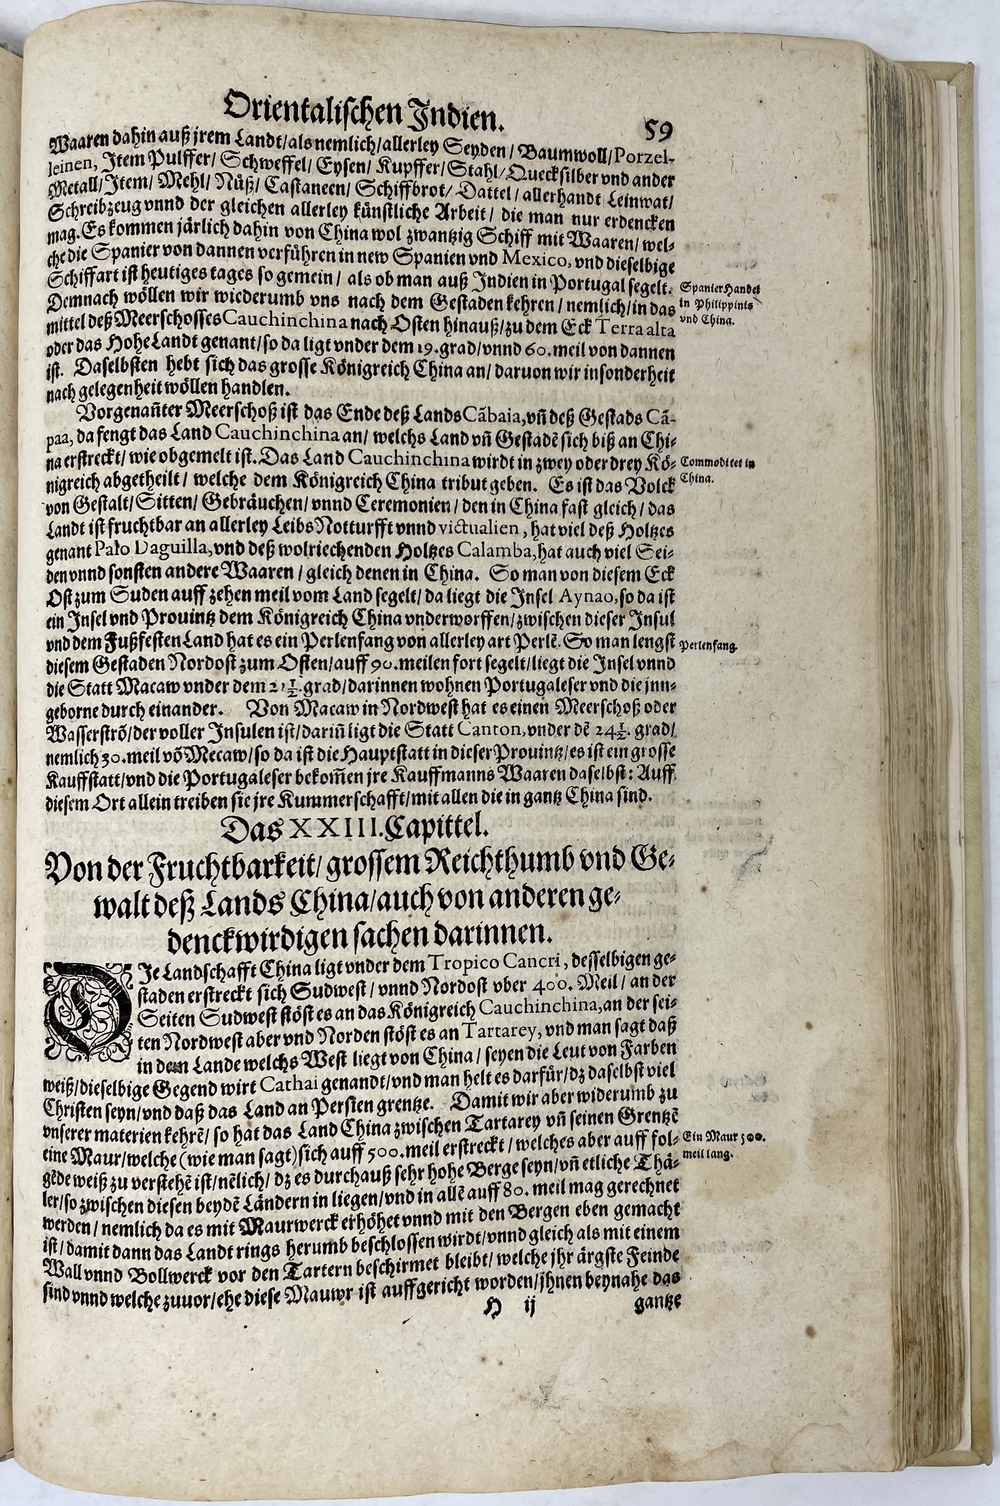 Orientalischen Indien. 59
Waaren dahin auß jrem Landt/als nemlich/allerley Seyden/ Baumwoll/Porzel-
leinen, Item Pulffer/ Schweffel/ Eysen/ Kupffer/Stahl/Quecksilber vnd ander
Metall/Item/ Mehl/ Nüß/ Castaneen/ Schiffbrot/ Dattel/ allerhandt Leinwat/
Schreibzeug vnnd der gleichen allerley künstliche Arbeit/ die man nur erdencken
mag. Es kommen järlich dahin von China wol zwantzig Schiff mit Waaren/ wel-
che die Spanier von dannen verführen in new Spanien vnd Mexico, vnd dieselbige
Schiffart ist heutiges tages so gemein/ als ob man auß Indien in Portugal segelt.
Demnach wöllen wir wiederumb vns nach dem Gestaden kehren/ nemlich/in das
mittel deß Meerschosses Cauchinchina nach Osten hinauß/zu dem Eck Terra alta
oder das Hohe Landt genant/so da ligt vnder dem 19.grad/vnnd 60.meil von dannen
ist. Daselbsten hebt sich das grosse Königreich China an/ daruon wir insonderheit
nach gelegenheit wöllen handlen.
Spanier Handel
in Philippinis
vnd China.
Vorgenañter Meerschoß ist das Ende deß Lands Cãbaia,vñ deß Gestads Cã-
paa, da fengt das Land Cauchinchina an/ welchs Land vñ Gestadẽ sich biß an Chi-
na erstreckt/ wie obgemelt ist. Das Land Cauchinchina wirdt in zwey oder drey Kö-
nigreich abgetheilt/ welche dem Königreich China tribut geben. Es ist das Volck
von Gestalt/Sitten/ Gebräuchen/ vnnd Ceremonien/ den in China fast gleich/ das
Landt ist fruchtbar an allerley Leibs Notturfft vnnd victualien, hat viel deß Holtzes
genant Palo Daguilla,vnd deß wolriechenden Holtzes Calamba,hat auch viel Sei-
den vnnd sonsten andere Waaren/ gleich denen in China. So man von diesem Eck
Ost zum Suden auff zehen meil vom Land segelt/ da liegt die Insel Aynao,so da ist
ein Insel vnd Prouintz dem Königreich China vnderworffen/zwischen dieser Insul
vnd dem Fußfesten Land hat es ein Perlenfang von allerley art Perlẽ. So man lengst
diesem Gestaden Nordost zum Osten/auff 90.meilen fort segelt/liegt die Insel vnnd
die Statt Macaw vnder dem 21½.grad/darinnen wohnen Portugaleser vnd die jnn-
geborne durch einander. Von Macaw in Nordwest hat es einen Meerschoß oder
Wasserströ/der voller Insulen ist/dariñ ligt die Statt Canton,vnder dẽ 24½. grad/
nemlich 30.meil võ Mecaw/so da ist die Hauptstatt in dieser Prouintz/es ist ein grosse
Kauffstatt/vnd die Portugaleser bekom̃en jre Kauffmanns Waaren daselbst: Auff
diesem Ort allein treiben sie jre Kummerschafft/mit allen die in gantz China sind.
Commoditet in
China.
Perlenfang.
Das XXIII.Capittel.
Von der Fruchtbarkeit/ grossem Reichthumb vnd Ge-
walt deß Lands China/auch von anderen ge-
denckwirdigen sachen darinnen.
DIe Landschafft China ligt vnder dem Tropico Cancri, desselbigen ge-
staden erstreckt sich Sudwest/ vnnd Nordost vber 400. Meil/ an der
Seiten Sudwest stöst es an das Königreich Cauchinchina,an der sei-
ten Nordwest aber vnd Norden stöst es an Tartarey, vnd man sagt daß
in dem Lande welchs West liegt von China/ seyen die Leut von Farben
weiß/dieselbige Gegend wirt Cathai genandt/vnd man helt es darfür/dz daselbst viel
Christen seyn/vnd daß das Land an Persien grentze. Damit wir aber widerumb zu
vnserer materien kehrẽ/ so hat das Land China zwischen Tartarey vñ seinen Grentzẽ
eine Maur/welche (wie man sagt) sich auff 500.meil erstreckt/ welches aber auff fol-
gẽde weiß zu verstehẽ ist/nẽlich/ dz es durchauß sehr hohe Berge seyn/vñ etliche Thä-
ler/so zwischen diesen beydẽ Ländern in liegen/vnd in allẽ auff 80. meil mag gerechnet
werden/ nemlich da es mit Maurwerck erhöhet vnnd mit den Bergen eben gemacht
ist/ damit dann das Landt rings herumb beschlossen wirdt/vnnd gleich als mit einem
Wall vnnd Bollwerck vor den Tartern beschirmet bleibt/ welche jhr ärgste Feinde
sind vnnd welche zuuor/ehe diese Mauwr ist auffgericht worden/jhnen beynahe das
Ein Maur 500.
meil lang.
H ij gantze